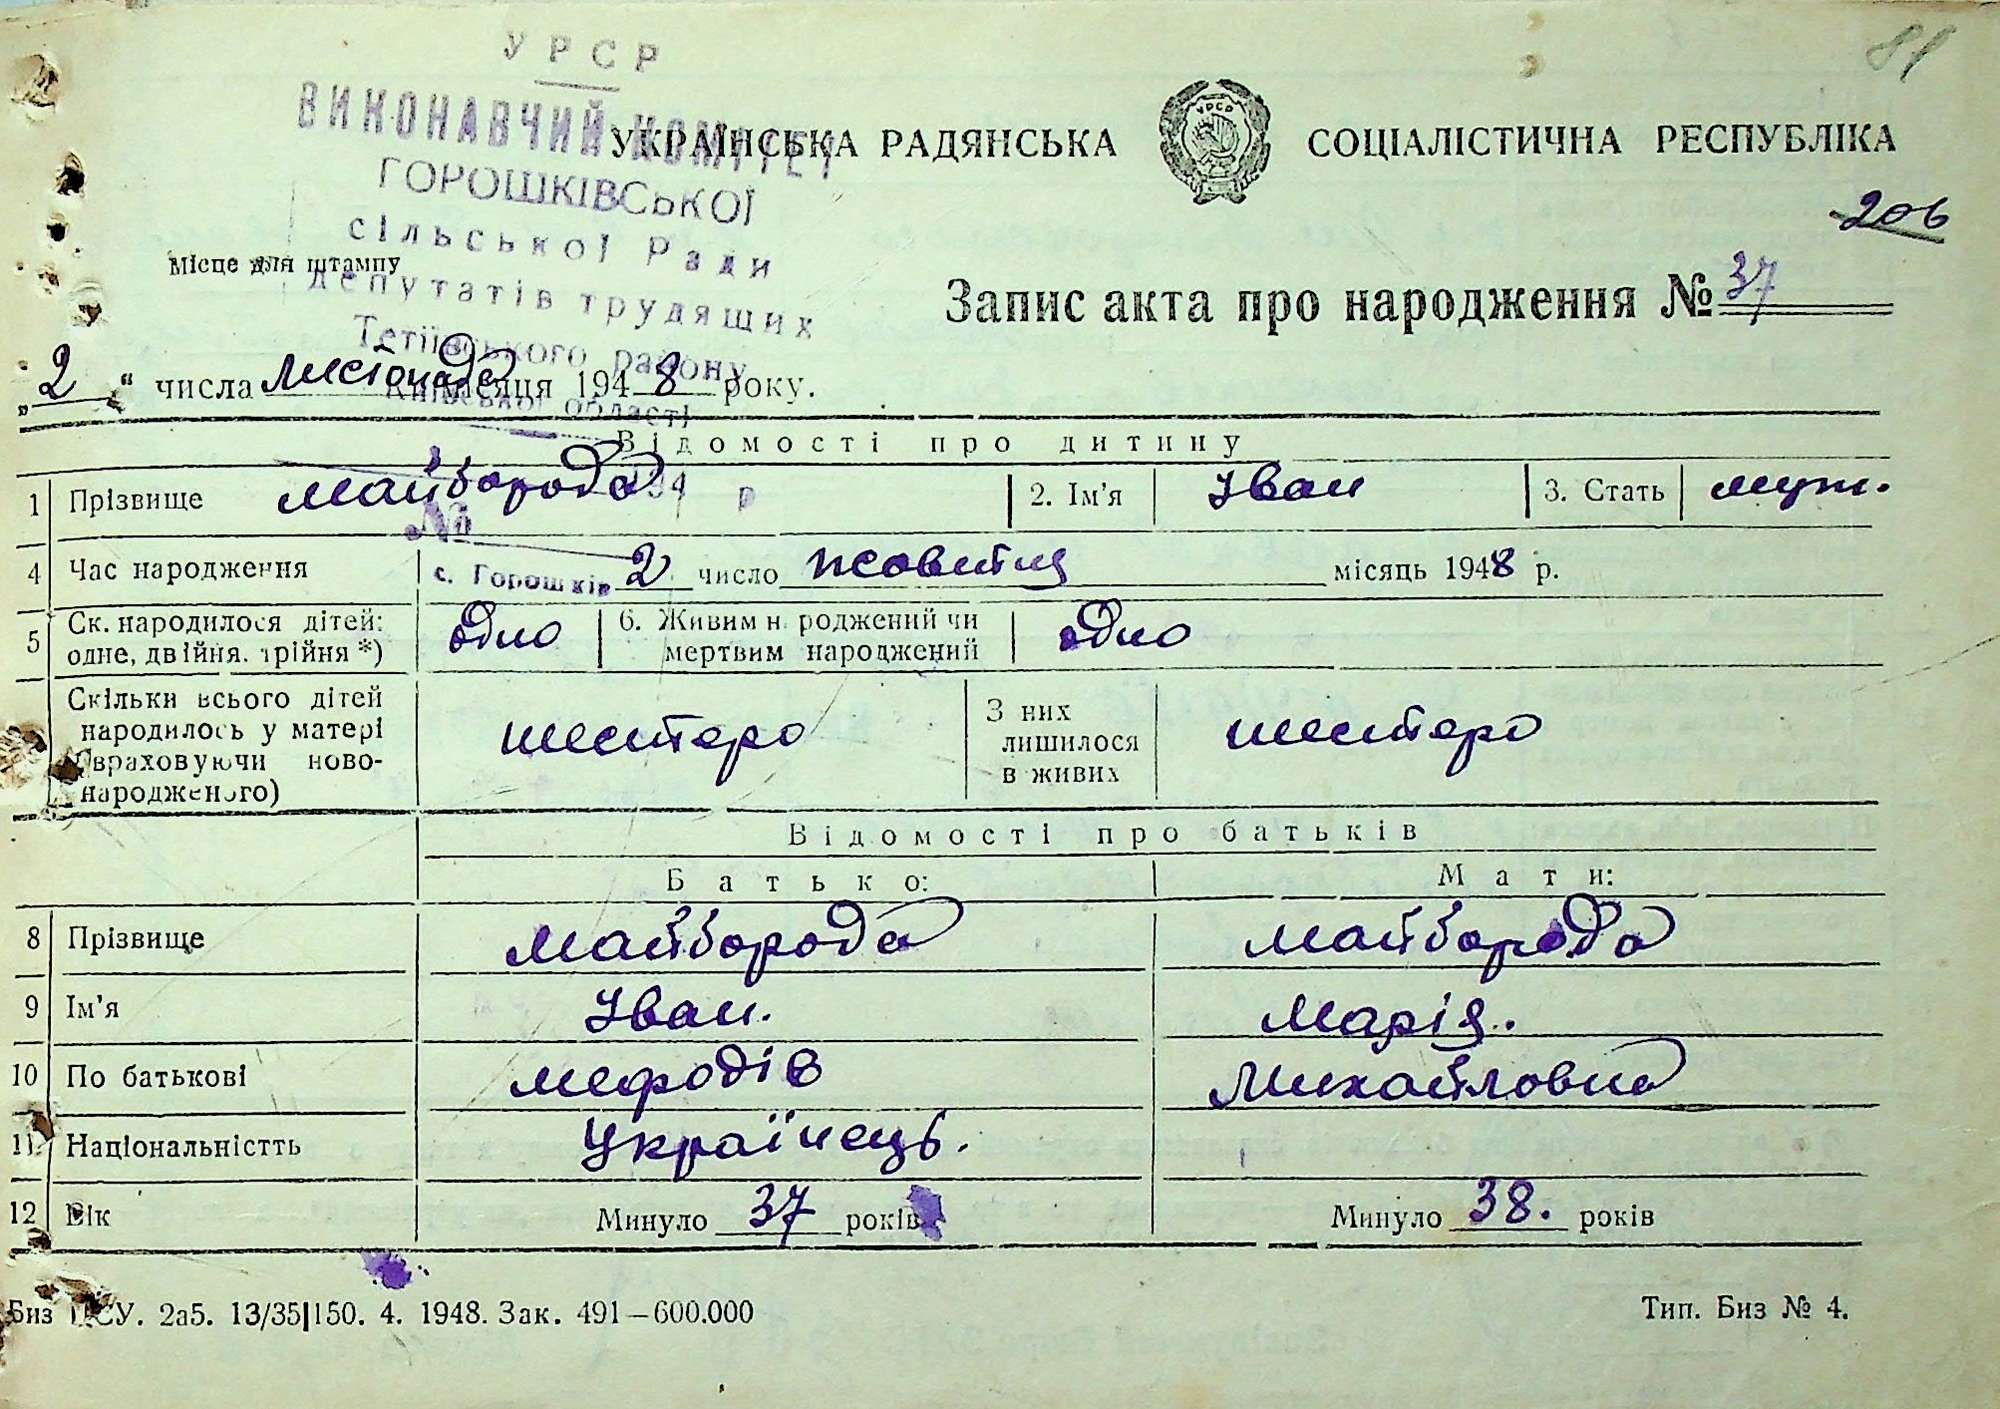 81
УРСР
ВИКОНАВЧИЙ КОМІТЕТ
ГОРОШКІВСЬКОЇ
сільської Ради
депутатів трудящих
Тетіївського району
Київської області
194 р
№
с. Горошків
УКРАЇНСЬКА РАДЯНСЬКА СОЦІАЛІСТИЧНА РЕСПУБЛІКА
206
Місце для штампу
Запис акта про народження № 37
„2“ числа листопада місяця 1948 року.
Відомості про дитину
1 Прізвище Майборода 2. Ім'я Іван 3. Стать муж.
4 Час народження 2 число жовтня місяць 1948 р.
5 Ск. народилося дітей: одно 6. Живим н роджений чи одно
одне, двійня, трійня *) мертвим народжений
Скільки всього дітей
народилось у матері шестеро З них лишилося в живих шестеро
(враховуючи ново-
народженого)
Відомості про батьків
Батько: Мати:
8 Прізвище Майборода Майборода
9 Ім'я Іван. Марія.
10 По батькові Мефодів Михайловна
11 Національністть Українець.
12 Вік Минуло 37 років Минуло 38. років
Биз ЦСУ. 2а5. 13/35|150. 4. 1948. Зак. 491—600.000 Тип. Биз № 4.